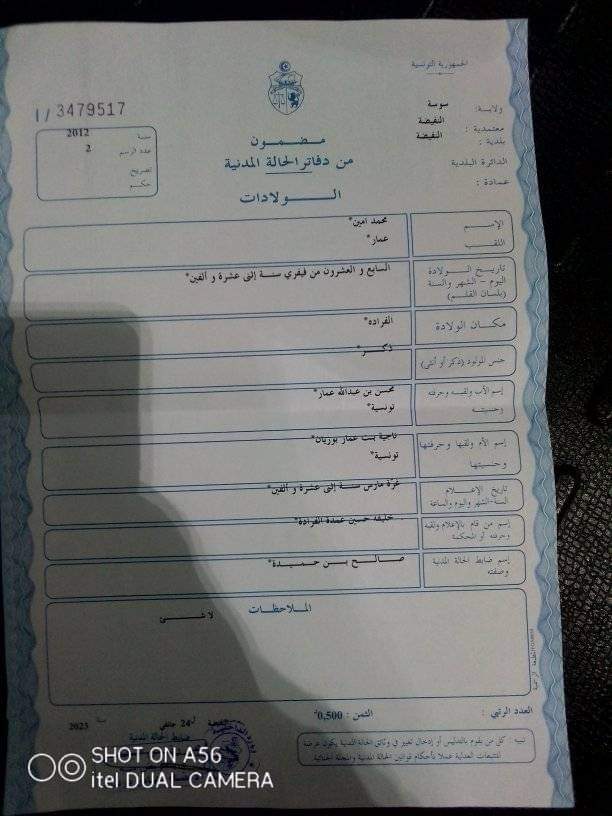 الجمهورية التونسية
ولاية: سوسة
معتمدية : النفيضة
بلدية : النفيضة
الدائرة البلدية
عمادة :
مضمون
من دفاتر الحالة المدنية
الولادات
I/ 3479517
سنة 2012
عدد الرسم 2
تصريح
حكم
الإسم محمد امين*
اللقب عمار*
تاريخ الولادة
اليوم - الشهر والسنة
(بلسان القلم)
السابع و العشرون من فيفري سنة إثنى عشرة و ألفين*
مكان الولادة القراده*
جنس المولود (ذكر أو أنثى) ذكر*
إسم الأب ولقبه وحرفته محسن بن عبدالله عمار*
وجنسيته تونسية*
إسم الأم ولقبها وحرفتها ناجية بنت عمار بوزيان*
وجنسيتها تونسية*
تاريخ الإعلام
السنة-الشهر واليوم والساعة
غرة مارس سنة إثنى عشرة و ألفين*
إسم من قام بالإعلام ولقبه
وحرفته أو المحكمة
خليفة حسين عمدة القرادة*
إسم ضابط الحالة المدنية
وصفته
صالح بن حميدة*
الملاحظات
لا شئ
العدد الرتبي : الثمن : 0,500
النفيضة في 24 جانفي سنة 2023
ضابط الحالة المدنية
تنبيه : كل من يقوم بالتدليس أو إدخال تغيير في وثائق الحالة المدنية يكون عرضة
للتتبعات العدلية عملا بأحكام قوانين الحالة المدنية والمجلة الجنائية
SHOT ON A56
itel DUAL CAMERA